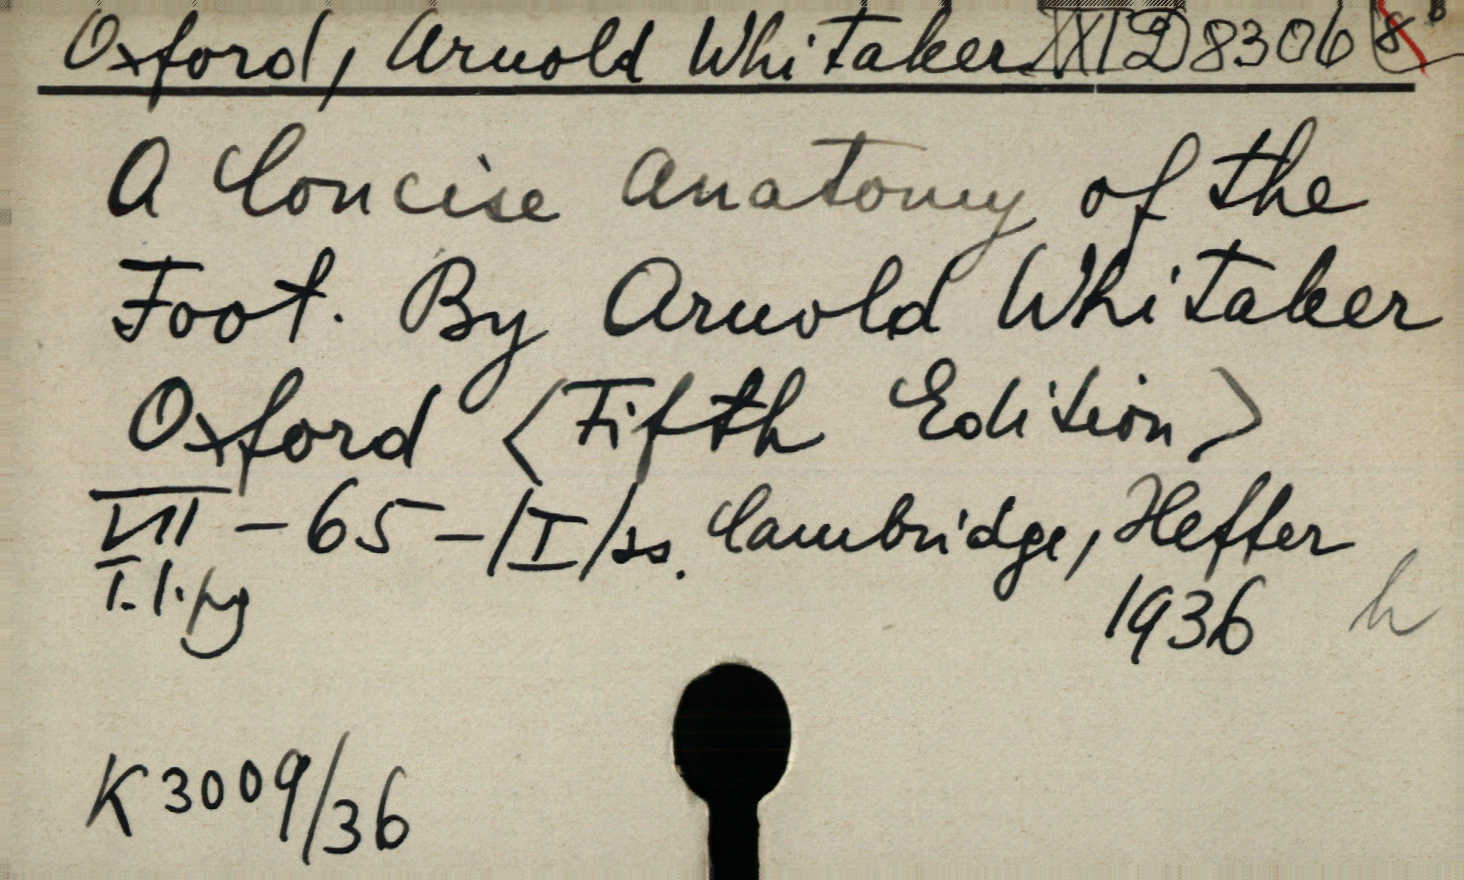 Oxford, Arnold Whitaker XXI D 8306 8
A Concise Anatomy of the
Foot. By Arnold Whitaker
Oxford <Fifth Edition>
VII - 65 - /I/ ss. Cambridge, Heffer
1936 h
K 3009/36